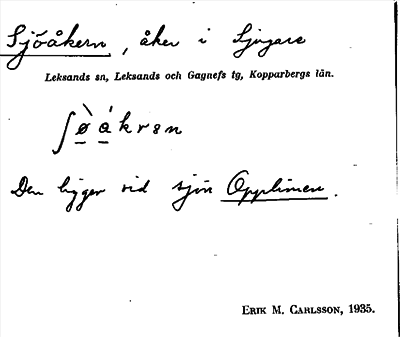 Sjöåkern, åker i Ljugare
Leksands sn, Leksands och Gagnefs tg, Kopparbergs län.
ʃø̠̀á̠krən
Den ligger vid sjön Opplimen.
ERIK M. CARLSSON, 1935.